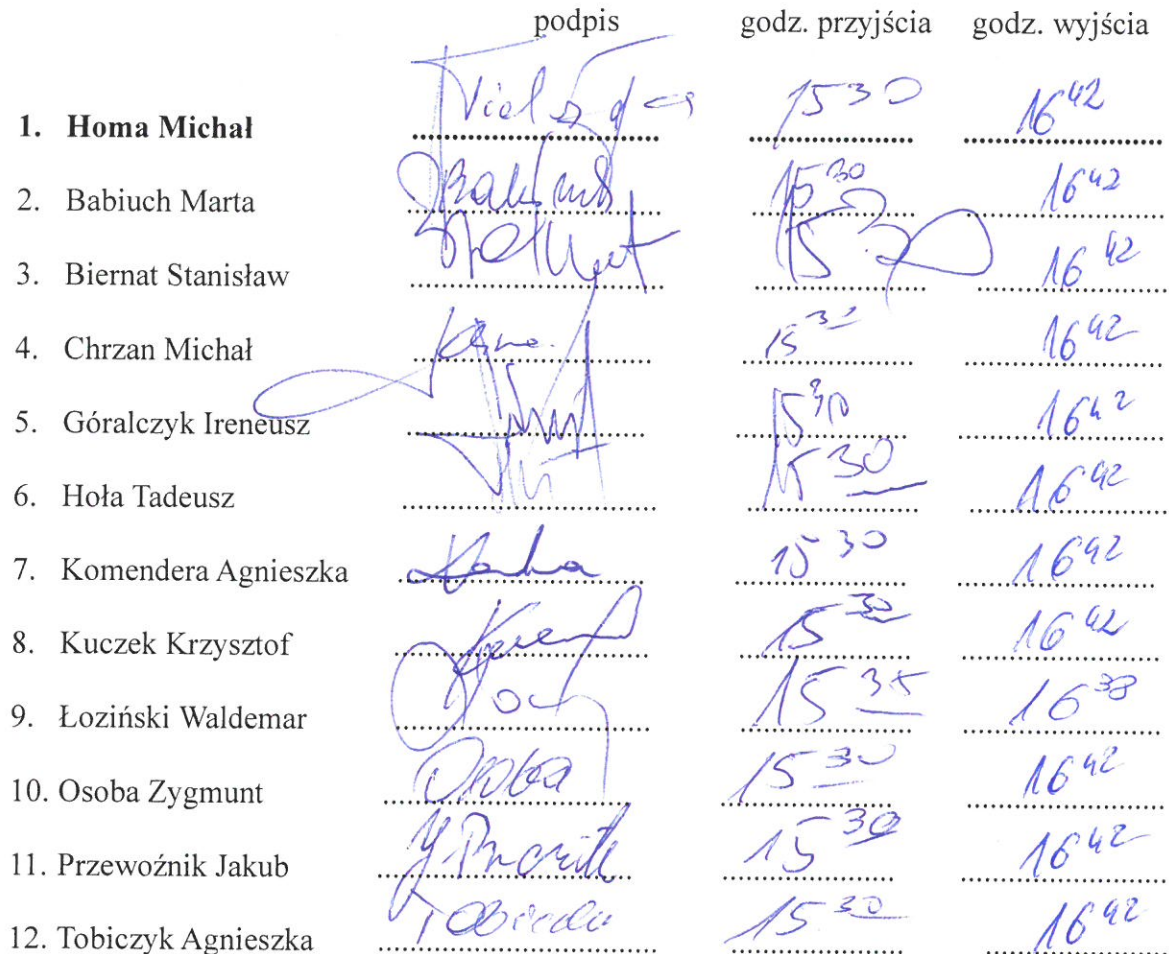 podpis godz. przyjścia godz. wyjścia
1. Homa Michał 15 30 16 42
2. Babiuch Marta 15 30 16 42
3. Biernat Stanisław 15 30 16 42
4. Chrzan Michał 15 30 16 42
5. Góralczyk Ireneusz 15 30 16 42
6. Hoła Tadeusz 15 30 16 42
7. Komendera Agnieszka 15 30 16 42
8. Kuczek Krzysztof 15 30 16 42
9. Łoziński Waldemar 15 35 16 38
10. Osoba Zygmunt Osoba 15 30 16 42
11. Przewoźnik Jakub 15 30 16 42
12. Tobiczyk Agnieszka 15 30 16 42